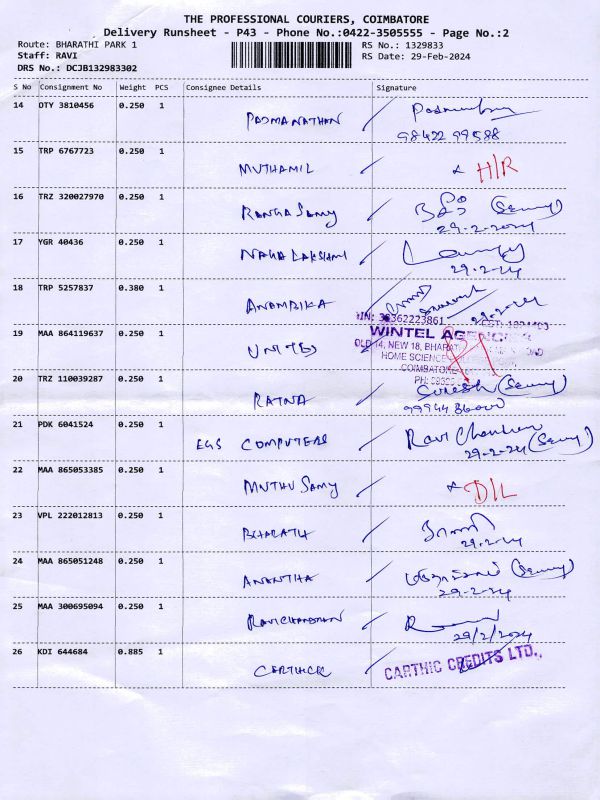 THE PROFESSIONAL COURIERS, COIMBATORE
Delivery Runsheet - P43 - Phone No.:0422-3505555 - Page No.:2
Route: BHARATHI PARK 1 RS No.: 1329833
Staff: RAVI RS Date: 29-Feb-2024
DRS No.: DCJB132983302
S No Consignment No Weight PCS Consignee Details Signature
14 DTY 3810456 0.250 1 PADMANATHAN
98422 99588
15 TRP 6767723 0.250 1 MUTHAMIL H/R
16 TRZ 320027970 0.250 1 RANGA Samy
29-2-2024
17 YGR 40436 0.250 1 NAGALAKSHMI
29-2-24
18 TRP 5257837 0.380 1 ANAMIKA
29-2-24
33362223861
19 MAA 864119637 0.250 1 UNITED WINTEL
OLD 14, NEW 18, ROAD
HOME SCIENCE
COIMBATORE
PH:
20 TRZ 110039287 0.250 1 RATNA Suresh
21 PDK 6041524 0.250 1 EGS COMPUTERS Ravi
29-2-24
22 MAA 865053385 0.250 1 MUTHU Samy D/L
23 VPL 222012813 0.250 1 BHARATH
29-2-24
24 MAA 865051248 0.250 1 ANANTHA
29-2-24
25 MAA 300695094 0.250 1 RAVICHANDRAN
29/2/2024
26 KDI 644684 0.885 1 CARTHICK CARTHIC CREDITS LTD.,